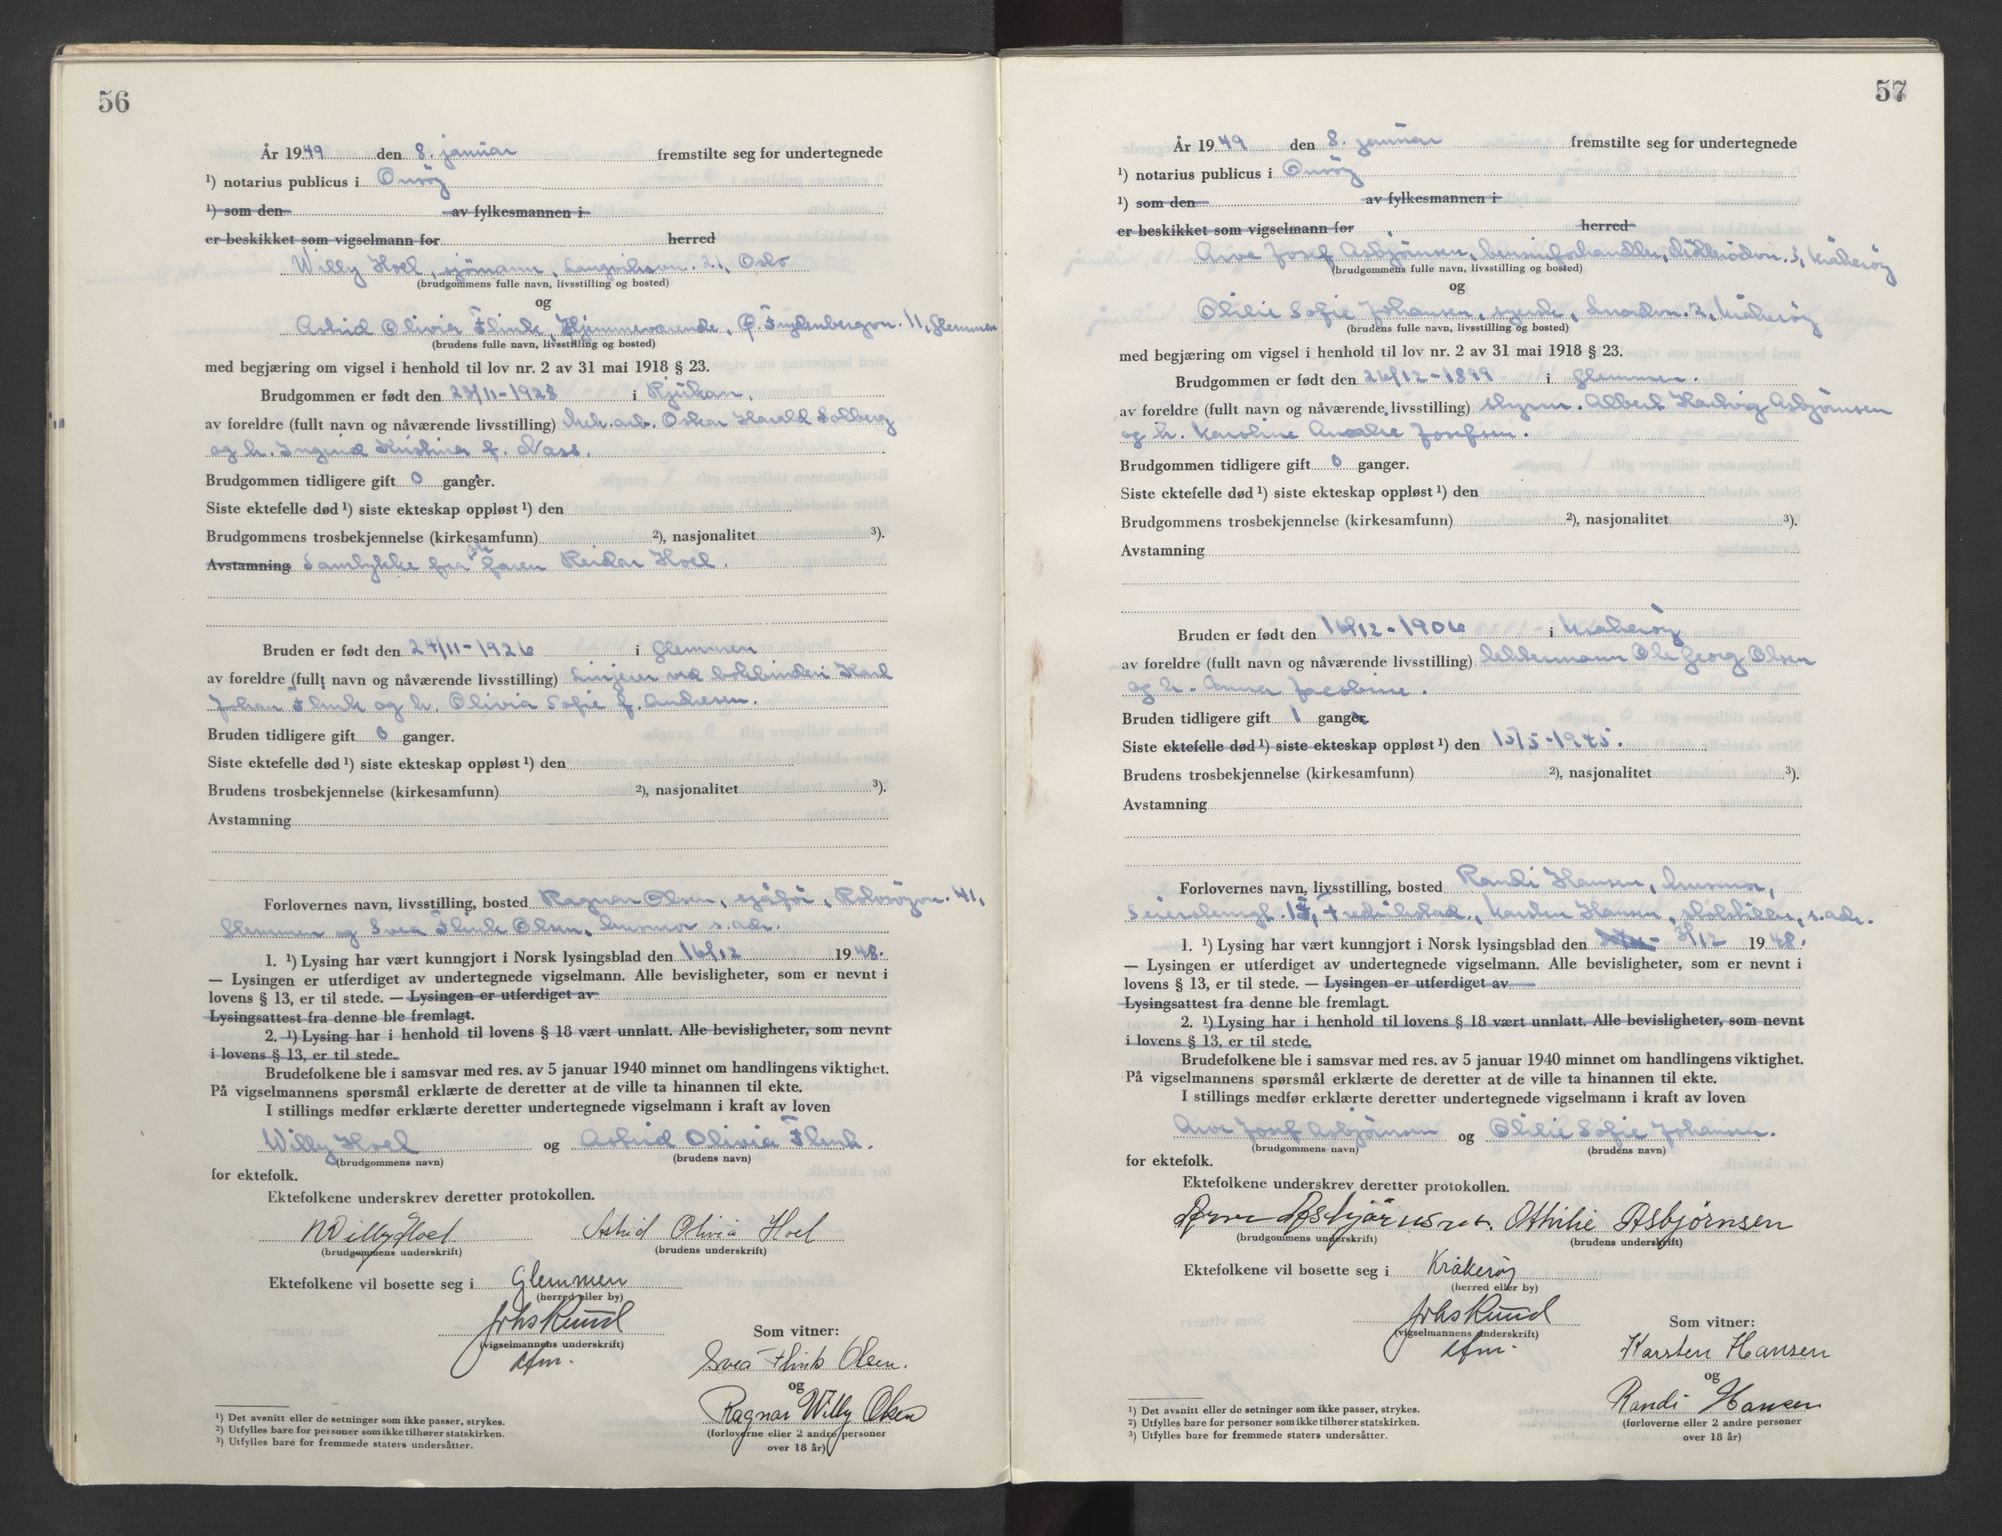 56
År 1949 den 8. januar fremstilte seg for undertegnede
¹) notarius publicus i Onsöy
¹) som den av fylkesmannen i
er beskikket som vigselmann for herred
Willy Hoel, sjömann, Langviksvn. 21, Oslo
(brudgommens fulle navn, livsstilling og bosted)
og
Astrid Olivia Flink, Hjemmeværende, 11, Glemmen
(brudens fulle navn, livsstilling og bosted)
med begjæring om vigsel i henhold til lov nr. 2 av 31 mai 1918 § 23.
Brudgommen er født den 23/11-1928 i Rjukan.
av foreldre (fullt navn og nåværende livsstilling) mek. arb. Oskar Harald Solberg
og h. Ingrid Kristine f. Næss.
Brudgommen tidligere gift 0 ganger.
Siste ektefelle død ¹) siste ekteskap oppløst ¹) den
Brudgommens trosbekjennelse (kirkesamfunn) ²), nasjonalitet ³).
Avstamning Samtykke fra faren Reidar Hoel.
Bruden er født den 24/11-1926 i Glemmen
av foreldre (fullt navn og nåværende livsstilling) Linjerer ved bokbinderi Karl
Johan Flink og h. Olivia Sofie f. Andresen.
Bruden tidligere gift 0 ganger.
Siste ektefelle død ¹) siste ekteskap oppløst ¹) den
Brudens trosbekjennelse (kirkesamfunn) ²), nasjonalitet ³).
Avstamning
Forlovernes navn, livsstilling, bosted Ragnar Olsen, sjåför, Rolvsöyvn. 41,
Glemmen og Svea Flink Olsen, husmor s. adr.
1. ¹) Lysing har vært kunngjort i Norsk lysingsblad den 16/12 1948.
— Lysingen er utferdiget av undertegnede vigselmann. Alle bevisligheter, som er nevnt i
lovens § 13, er til stede. — Lysingen er utferdiget av
Lysingsattest fra denne ble fremlagt.
2. ¹) Lysing har i henhold til lovens § 18 vært unnlatt. Alle bevisligheter, som nevnt
i lovens § 13, er til stede.
Brudefolkene ble i samsvar med res. av 5 januar 1940 minnet om handlingens viktighet.
På vigselmannens spørsmål erklærte de deretter at de ville ta hinannen til ekte.
I stillings medfør erklærte deretter undertegnede vigselmann i kraft av loven
Willy Hoel og Astrid Olivia Flink.
(brudgommens navn) (brudens navn)
for ektefolk.
Ektefolkene underskrev deretter protokollen.
Willy Hoel Astrid Olivia Hoel
(brudgommens underskrift) (brudens underskrift)
Ektefolkene vil bosette seg i Glemmen
(herred eller by)
Johs Ruud
(vigselmannens underskrift)
Som vitner:
Svea Flink Olsen.
og
Ragnar Willy Olsen
(forloverne eller 2 andre personer
over 18 år)
¹) Det avsnitt eller de setninger som ikke passer, strykes.
²) Utfylles bare for personer som ikke tilhører statskirken.
³) Utfylles bare for fremmede staters undersåtter.
57
År 1949 den 8. januar fremstilte seg for undertegnede
¹) notarius publicus i Onsöy
¹) som den av fylkesmannen i
er beskikket som vigselmann for herred
Arve Josef Asbjörnsen, bensinforhandler, 3, Kråkeröy
(brudgommens fulle navn, livsstilling og bosted)
og
Otilie Sofie Johansen, syerske, 2, Kråkeröy
(brudens fulle navn, livsstilling og bosted)
med begjæring om vigsel i henhold til lov nr. 2 av 31 mai 1918 § 23.
Brudgommen er født den 26/12-1899 i Glemmen.
av foreldre (fullt navn og nåværende livsstilling) styrm. Albert Hartvig Asbjörnsen
og h. Karoline Amalie Josefsen.
Brudgommen tidligere gift 0 ganger.
Siste ektefelle død ¹) siste ekteskap oppløst ¹) den
Brudgommens trosbekjennelse (kirkesamfunn) ²), nasjonalitet ³).
Avstamning
Bruden er født den 16/12-1906 i Kråkeröy
av foreldre (fullt navn og nåværende livsstilling) lektermann Ole Georg Olsen
og h. Anna Jacobine.
Bruden tidligere gift 1 ganger.
Siste ektefelle død ¹) siste ekteskap oppløst ¹) den 15/5-1945.
Brudens trosbekjennelse (kirkesamfunn) ²), nasjonalitet ³).
Avstamning
Forlovernes navn, livsstilling, bosted Randi Hansen, husmor,
Fredrikstad, Karsten Hansen, s. adr.
1. ¹) Lysing har vært kunngjort i Norsk lysingsblad den /12 1948.
— Lysingen er utferdiget av undertegnede vigselmann. Alle bevisligheter, som er nevnt i
lovens § 13, er til stede. — Lysingen er utferdiget av
Lysingsattest fra denne ble fremlagt.
2. ¹) Lysing har i henhold til lovens § 18 vært unnlatt. Alle bevisligheter, som nevnt
i lovens § 13, er til stede.
Brudefolkene ble i samsvar med res. av 5 januar 1940 minnet om handlingens viktighet.
På vigselmannens spørsmål erklærte de deretter at de ville ta hinannen til ekte.
I stillings medfør erklærte deretter undertegnede vigselmann i kraft av loven
Arve Josef Asbjörnsen og Otilie Sofie Johansen.
(brudgommens navn) (brudens navn)
for ektefolk.
Ektefolkene underskrev deretter protokollen.
Arve Asbjörnsen. Othilie Asbjørnsen
(brudgommens underskrift) (brudens underskrift)
Ektefolkene vil bosette seg i Kråkeröy
(herred eller by)
Johs Ruud
(vigselmannens underskrift)
Som vitner:
Karsten Hansen
og
Randi Hansen
(forloverne eller 2 andre personer
over 18 år)
¹) Det avsnitt eller de setninger som ikke passer, strykes.
²) Utfylles bare for personer som ikke tilhører statskirken.
³) Utfylles bare for fremmede staters undersåtter.